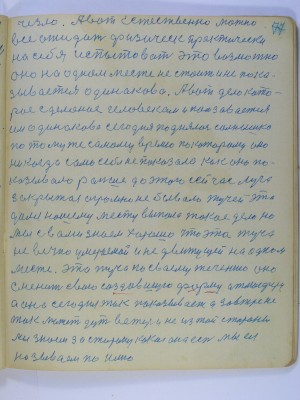 чезло. А вот естественно можно
все ожидат физическ практически
на себя испытоват это возможно
оно на одном месте не стоит и не пока-
зывается одинакова. А вот дело кото-
рое сделоное человеком и показавается
им одинаково сегодня поднялос солнышко
по тому же самому время по которому оно
никогда само себя не показала как оно по-
казывало раньше до этого сейчас туча
закрыла
дали нашему месту выпало такое дело но
мы с вами знаем хорошо что эта туча
не вечно и не движущей на одном
месте. Это туча по своему течению оно
сменит свою создавшую форму
а оно сегодня так показывает а завтре
так может дут ветер и не из той стороны
мы знаем за старину как она ест мы ей
называем по Ино